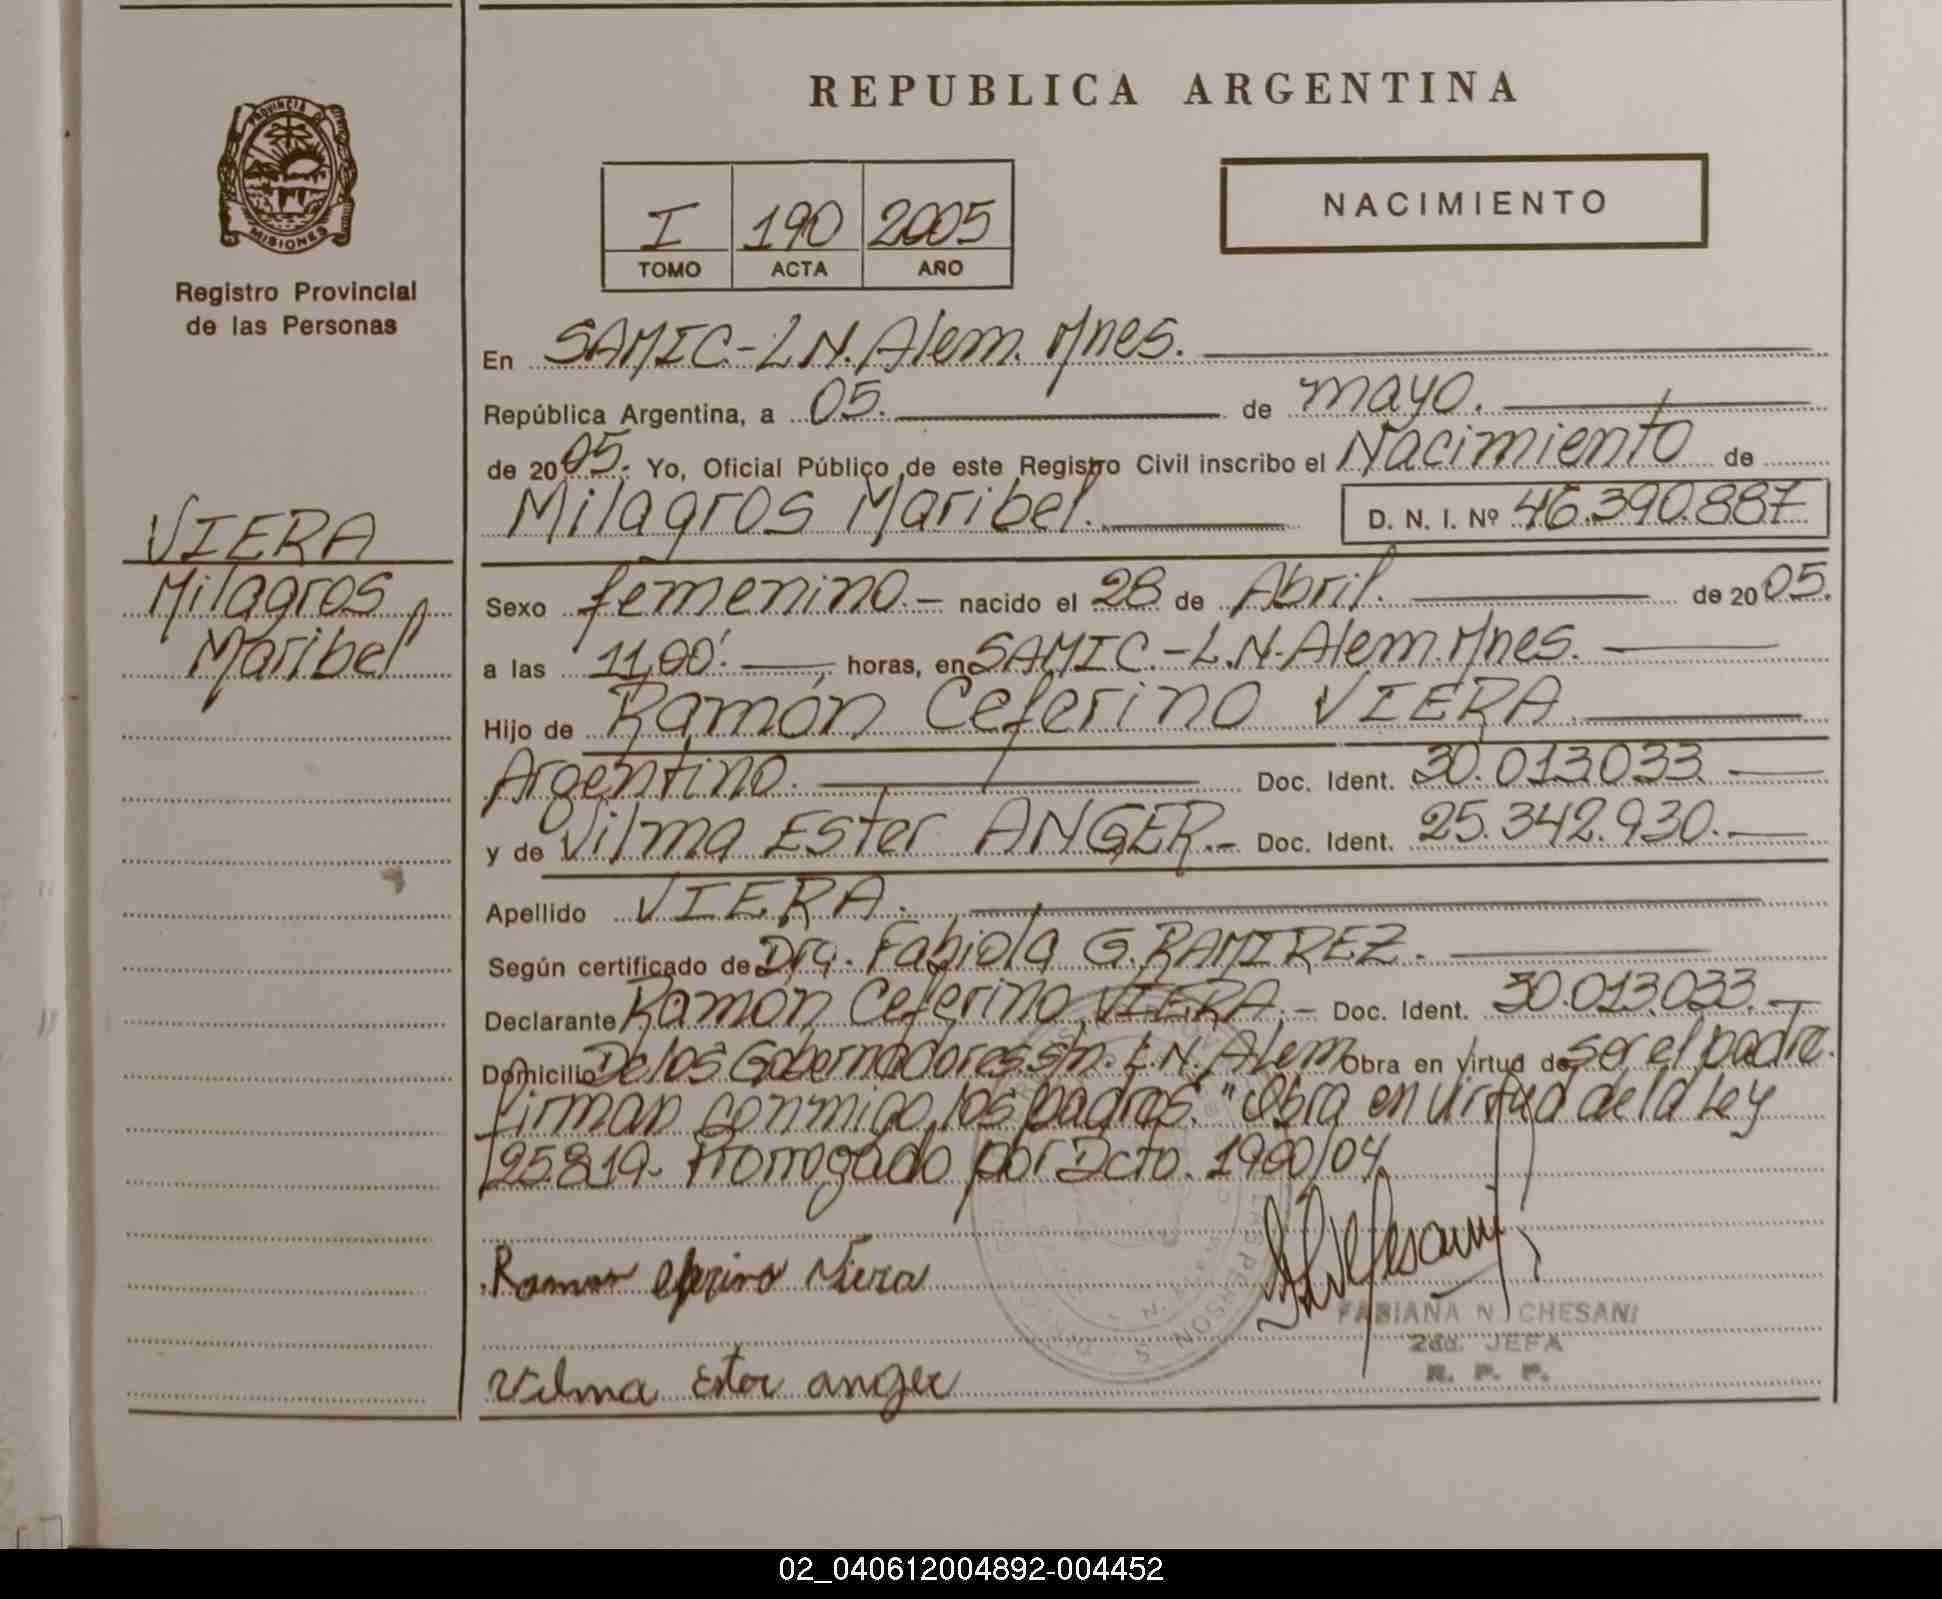 REPUBLICA ARGENTINA
PROVINCIA DE
MISIONES
Registro Provincial
de las Personas
NACIMIENTO
I 190 2005
TOMO ACTA AÑO
En SAMIC.-L.N. Alem. Mnes.
República Argentina, a 05. de mayo.
de 2005. Yo, Oficial Público de este Registro Civil inscribo el Nacimiento de
Milagros Maribel. D. N. I. Nº 46.390.887
VIERA
Milagros
Maribel
Sexo femenino.- nacido el 28 de Abril. de 2005.
a las 11,00'. horas, en SAMIC.-L.N. Alem. Mnes.
Hijo de Ramón Ceferino VIERA
Argentino. Doc. Ident. 30.013.033
y de Vilma Ester ANGER.- Doc. Ident. 25.342.930.
Apellido VIERA.
Según certificado de Dra. Fabiola G. RAMIREZ.
Declarante Ramón Ceferino VIERA.- Doc. Ident. 30.013.033.
Domicilio De los Gobernadores stn. L.N. Alem Obra en virtud de ser el padre.
Firman conmigo los padres. "Obra en virtud de la Ley
25.819- Prorrogado por Dcto. 1990/04.
Ramon Ceferino Viera
FABIANA N. CHESANI
2da. JEFA
R. P. P.
Vilma Ester anger
02_040612004892-004452